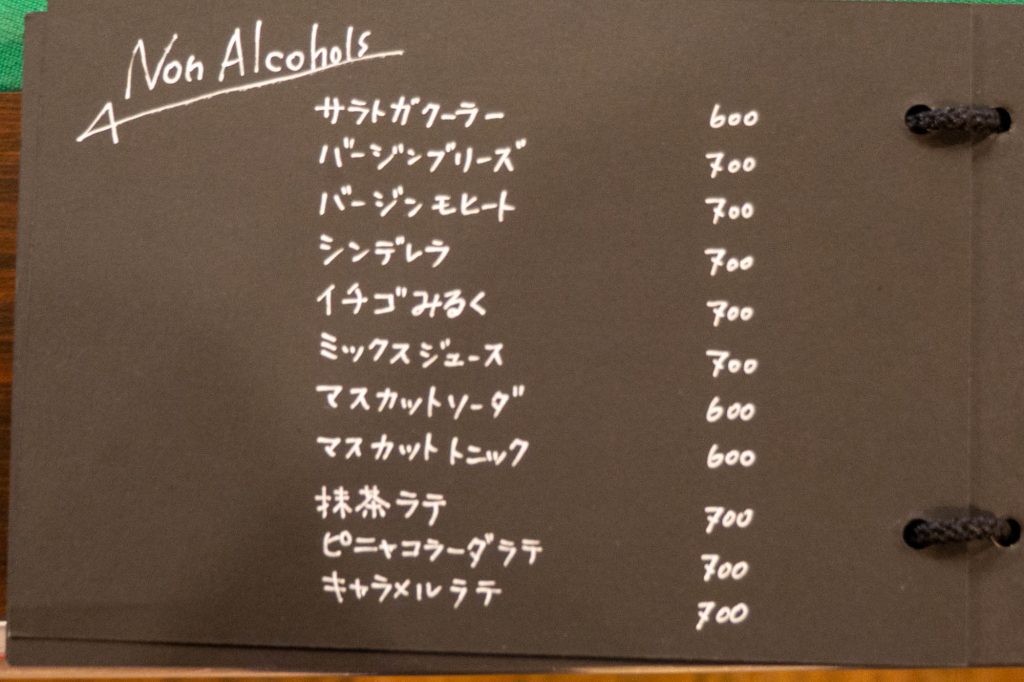 Non Alcohols
サラトガクーラー 600
バージンブリーズ 700
バージンモヒート 700
シンデレラ 700
イチゴみるく 700
ミックスジュース 700
マスカットソーダ 600
マスカットトニック 600
抹茶ラテ 700
ピニャコラーダラテ 700
キャラメルラテ 700